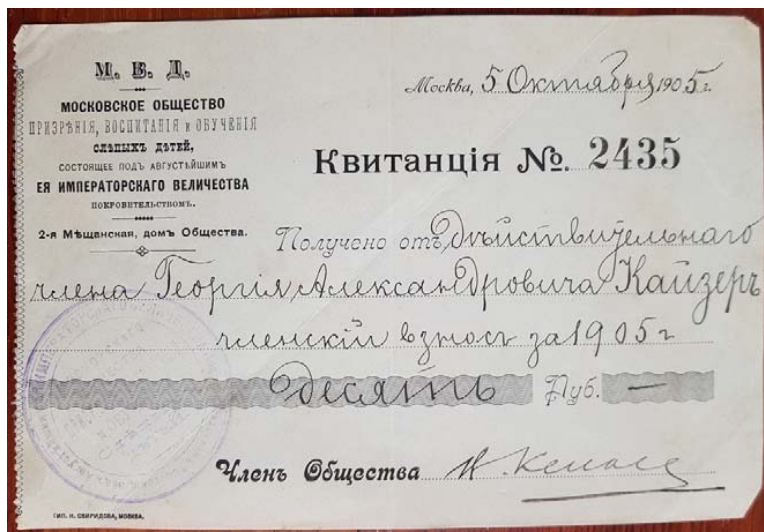 М. В. Д.
МОСКОВСКОЕ ОБЩЕСТВО
ПРИЗРѢНІЯ, ВОСПИТАНІЯ и ОБУЧЕНІЯ
СЛѢПЫХЪ ДѢТЕЙ,
СОСТОЯЩЕЕ ПОДЪ АВГУСТѢЙШИМЪ
ЕЯ ИМПЕРАТОРСКАГО ВЕЛИЧЕСТВА
ПОКРОВИТЕЛЬСТВОМЪ.
2-я Мѣщанская, домъ Общества.
Москва, 5 Октября 1905 г.
Квитанція №. 2435
Получено отъ Дѣйствительнаго
члена Георгія Александровича Кайзеръ
членскій взносъ за 1905 г
Десять Руб. —
Членъ Общества
ТИП. Н. СВИРИДОВА, МОСКВА.